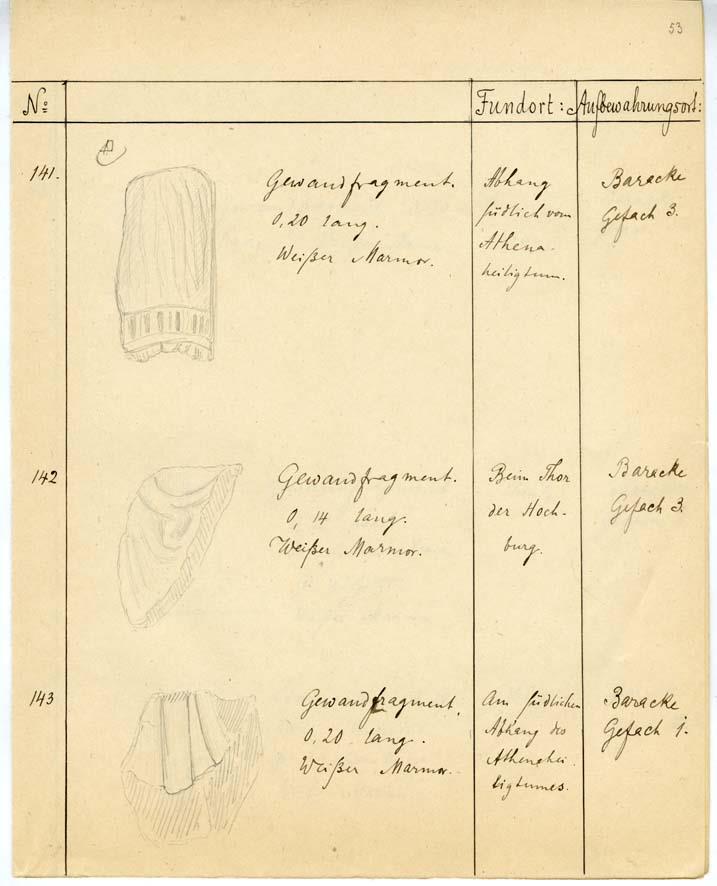 53
No
Fundort:
Aufbewahrungsort:
141.
Gewandfragment.
0,20 lang.
Weißer Marmor.
Abhang
südlich vom
Athena-
heiligtum.
Baracke
Gefach 3.
142
Gewandfragment.
0,14 lang.
Weißer Marmor.
Beim Thor
der Hoch-
burg.
Baracke
Gefach 3.
143
Gewandfragment.
0,20 lang.
Weißer Marmor.
Am südlichen
Abhang des
Athenahei-
ligtumes.
Baracke
Gefach 1.